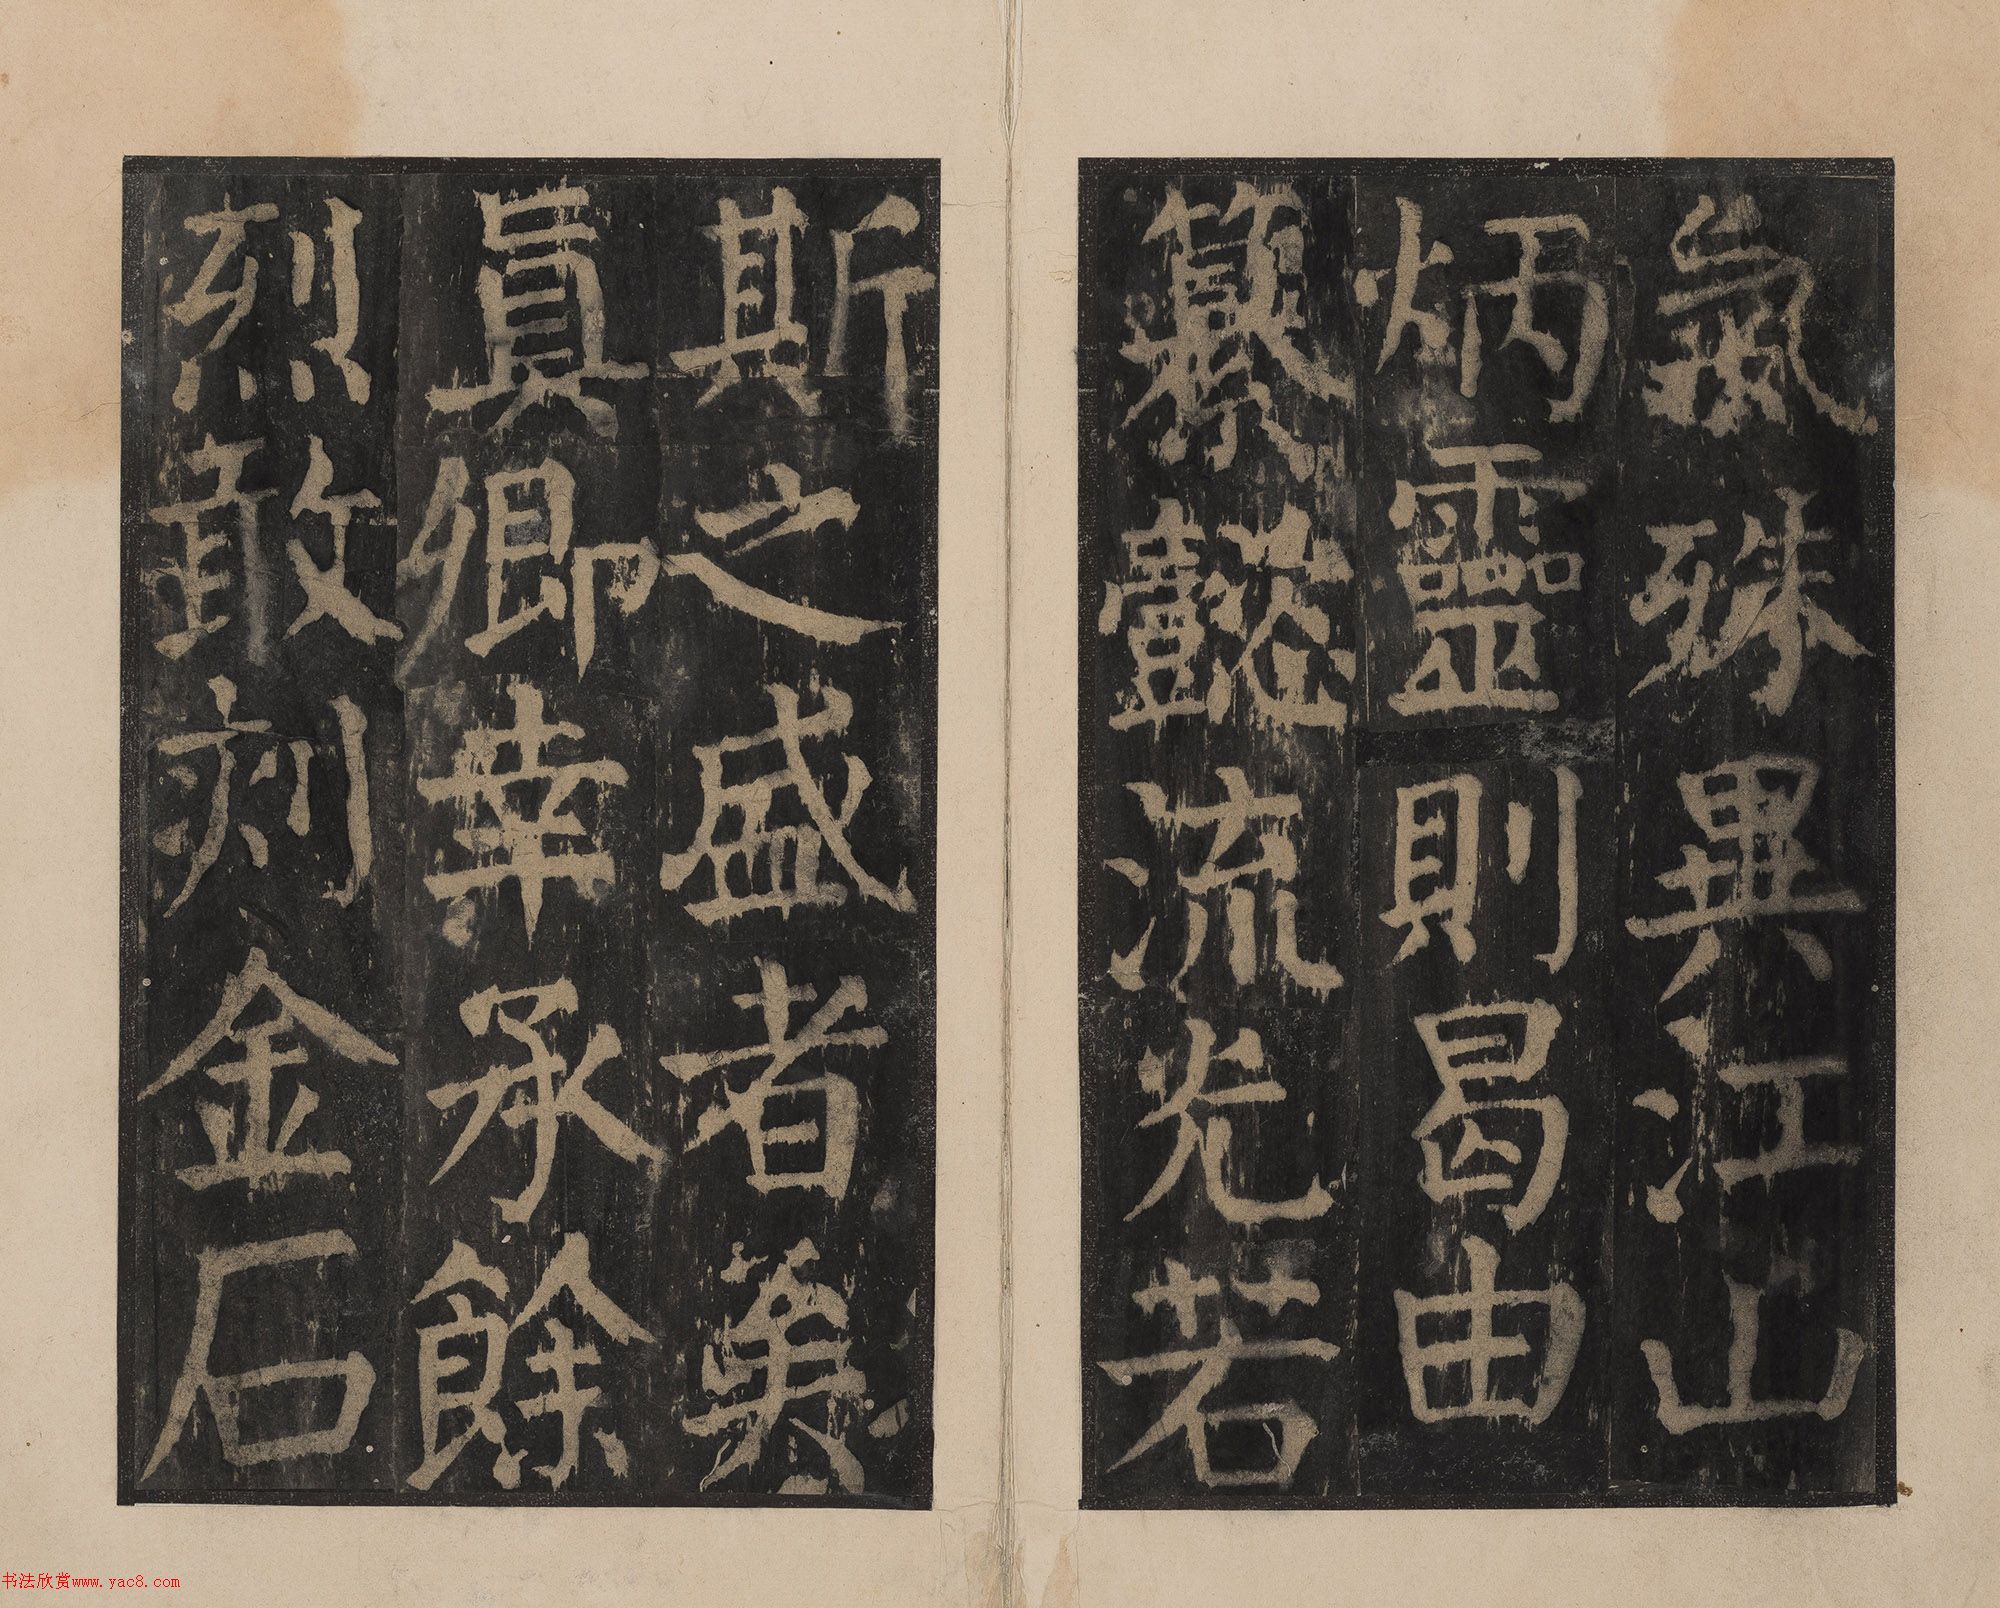 氣殊異江山
炳靈則曷由
纂懿流光若
斯之盛者矣
真卿幸承餘
烈敢刻金石
书法欣赏www.yac8.com